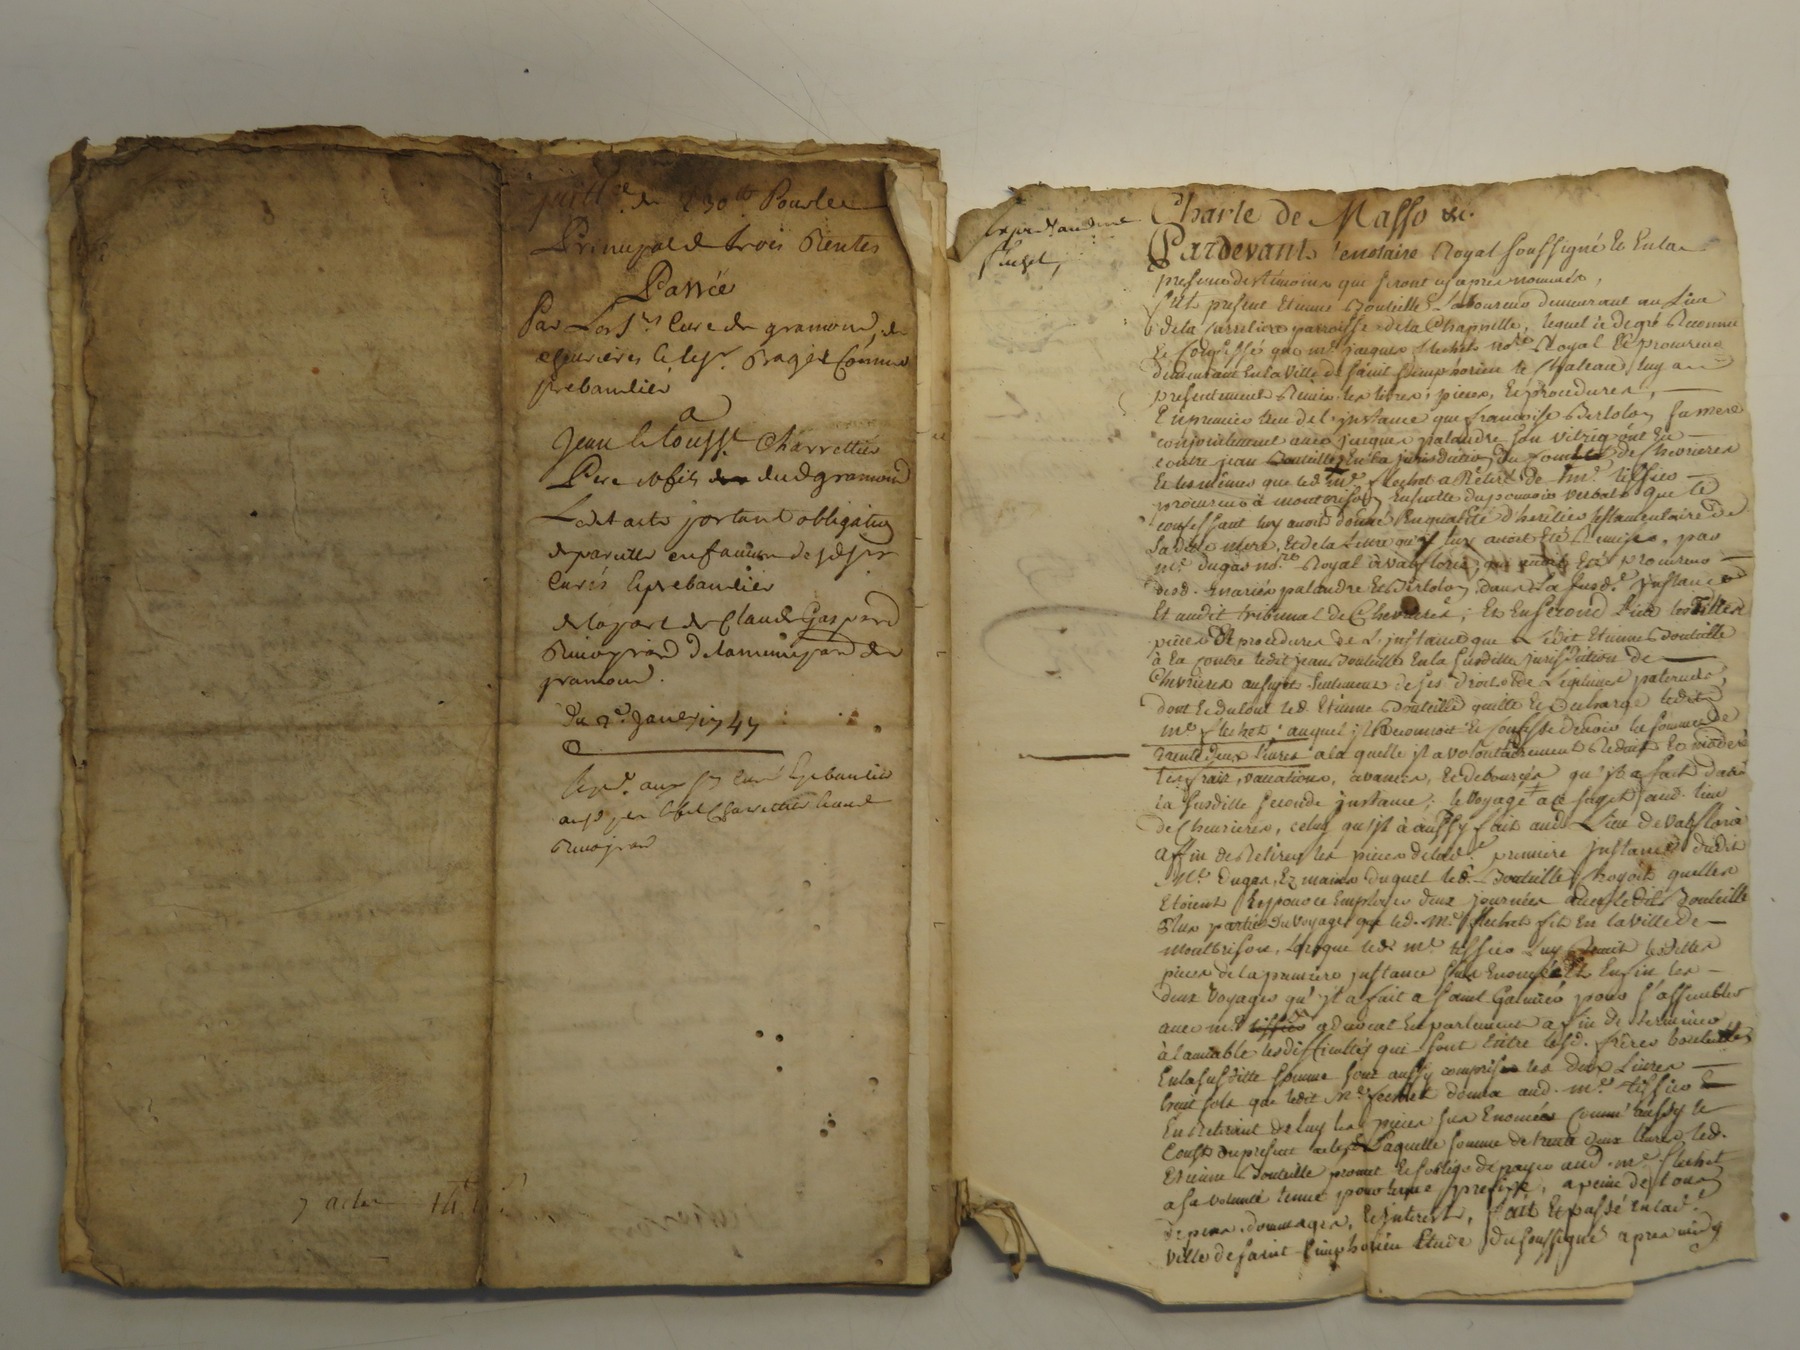 de 230lt Pour le
Principal de trois Rentes
Passée
Par Les Srs Curé de gramond, de
chevrieres & le Sr. Comme
prebandier
a
Jean Charretier
Pere & fils dud gramond
Ledt acte portant obligation
en faveur desd srs
Curés & prebandier
de la part de Claude Gaspard
de
gramond.
Du 2e. Janer 1747
aux srs curé & prebandier
7 actes
Charle de Masso &c.
Pardevant le notaire Royal soussigné & en la
presence des temoins qui seront cy apres nommés,
fut present Etienne Bouteille Laboureur demeurant au Lieu
de la parroisse de la Chappelle, lequel de gré a Reconnu
& Confessé que me. jacques flechet nore. Royal & procureur
demeurant en la Ville de saint simphorien le Chateau luy a
presentement Remis les titres, pieces, & procedures,
En premier lieu de l'instance que francoise Bertolon sa mere
conjointement avec jacques palandre son vitrig ont eu
contre jean Bouteille en la jurisdiction du de Chevrieres
Et les mêmes que led. me. flechet a Retiré de me. tissier
procureur à montbrison ensuitte du pouvoir verbal que le
confessant luy avoit donné en qualité d'heritier testamentaire de
sa ditte mere, Et de la Livre qu'il luy avoit Eté Remise, par
me. dugas nore. Royal à valfloria, qui Eté procureur
desd. mariés palandre & Bertolon dans la susde. instance
Et audit tribunal de Chevrieres; Et en second Lieu les titres
pieces & procedures de L'instance que Ledit Etienne Bouteille
à eu contre ledit jean Bouteille en la susditte jurisdiction de
Chevrieres au sujet seulement de ses droits de Legitime paternels,
dont & du tout led. Etienne Bouteille quitte & decharge ledit
me. flechet auquel il Reconnoit & confesse devoir la somme de
trente deux livres a la quelle il a volontairement Reduit & moderé
les frais, vacations, avances, & deboursés qu'il a fait dans
la susditte seconde instance; le voyage a ce sujet aud. lieu
de Chevrieres, celuy qu'il à aussy fait aud. Lieu de valfloria
affin de Retirer les pieces de lad. premiere instance dudit
Me. Dugas, Ez mains duquel led. Bouteille croyoit quelles
Etoient & pour ce Employer deux journées avec ledit Bouteille
Plus partie du voyage que led. Me. flechet fit en la ville de
montbrison, lorsque led. me. tissier luy Remit lesdittes
pieces de la premiere instance sus Enoncée & Enfin les
deux voyages qu'il a fait a saint Galmier pour s'assembler
avec me. advocat en parlement afin de terminer
à l'amiable les difficultés qui sont Entre lesd. freres bouteilles
En la susditte somme sont aussy comprises les deux Livres
trent sols que ledit Me. flechet donna aud. me. tissier
En Retirant de luy les pieces sus Enoncées Comme aussy le
Coust du present acte Laquelle somme de trente deux livres led.
Etienne Bouteille promet & s'oblige de payer aud. me. flechet
a sa volonté tenue pour terme prefix, a peine de tous
depens, dommages, & interest, fait & passé en lad.
ville de saint simphorien Etude du soussigné apres midy